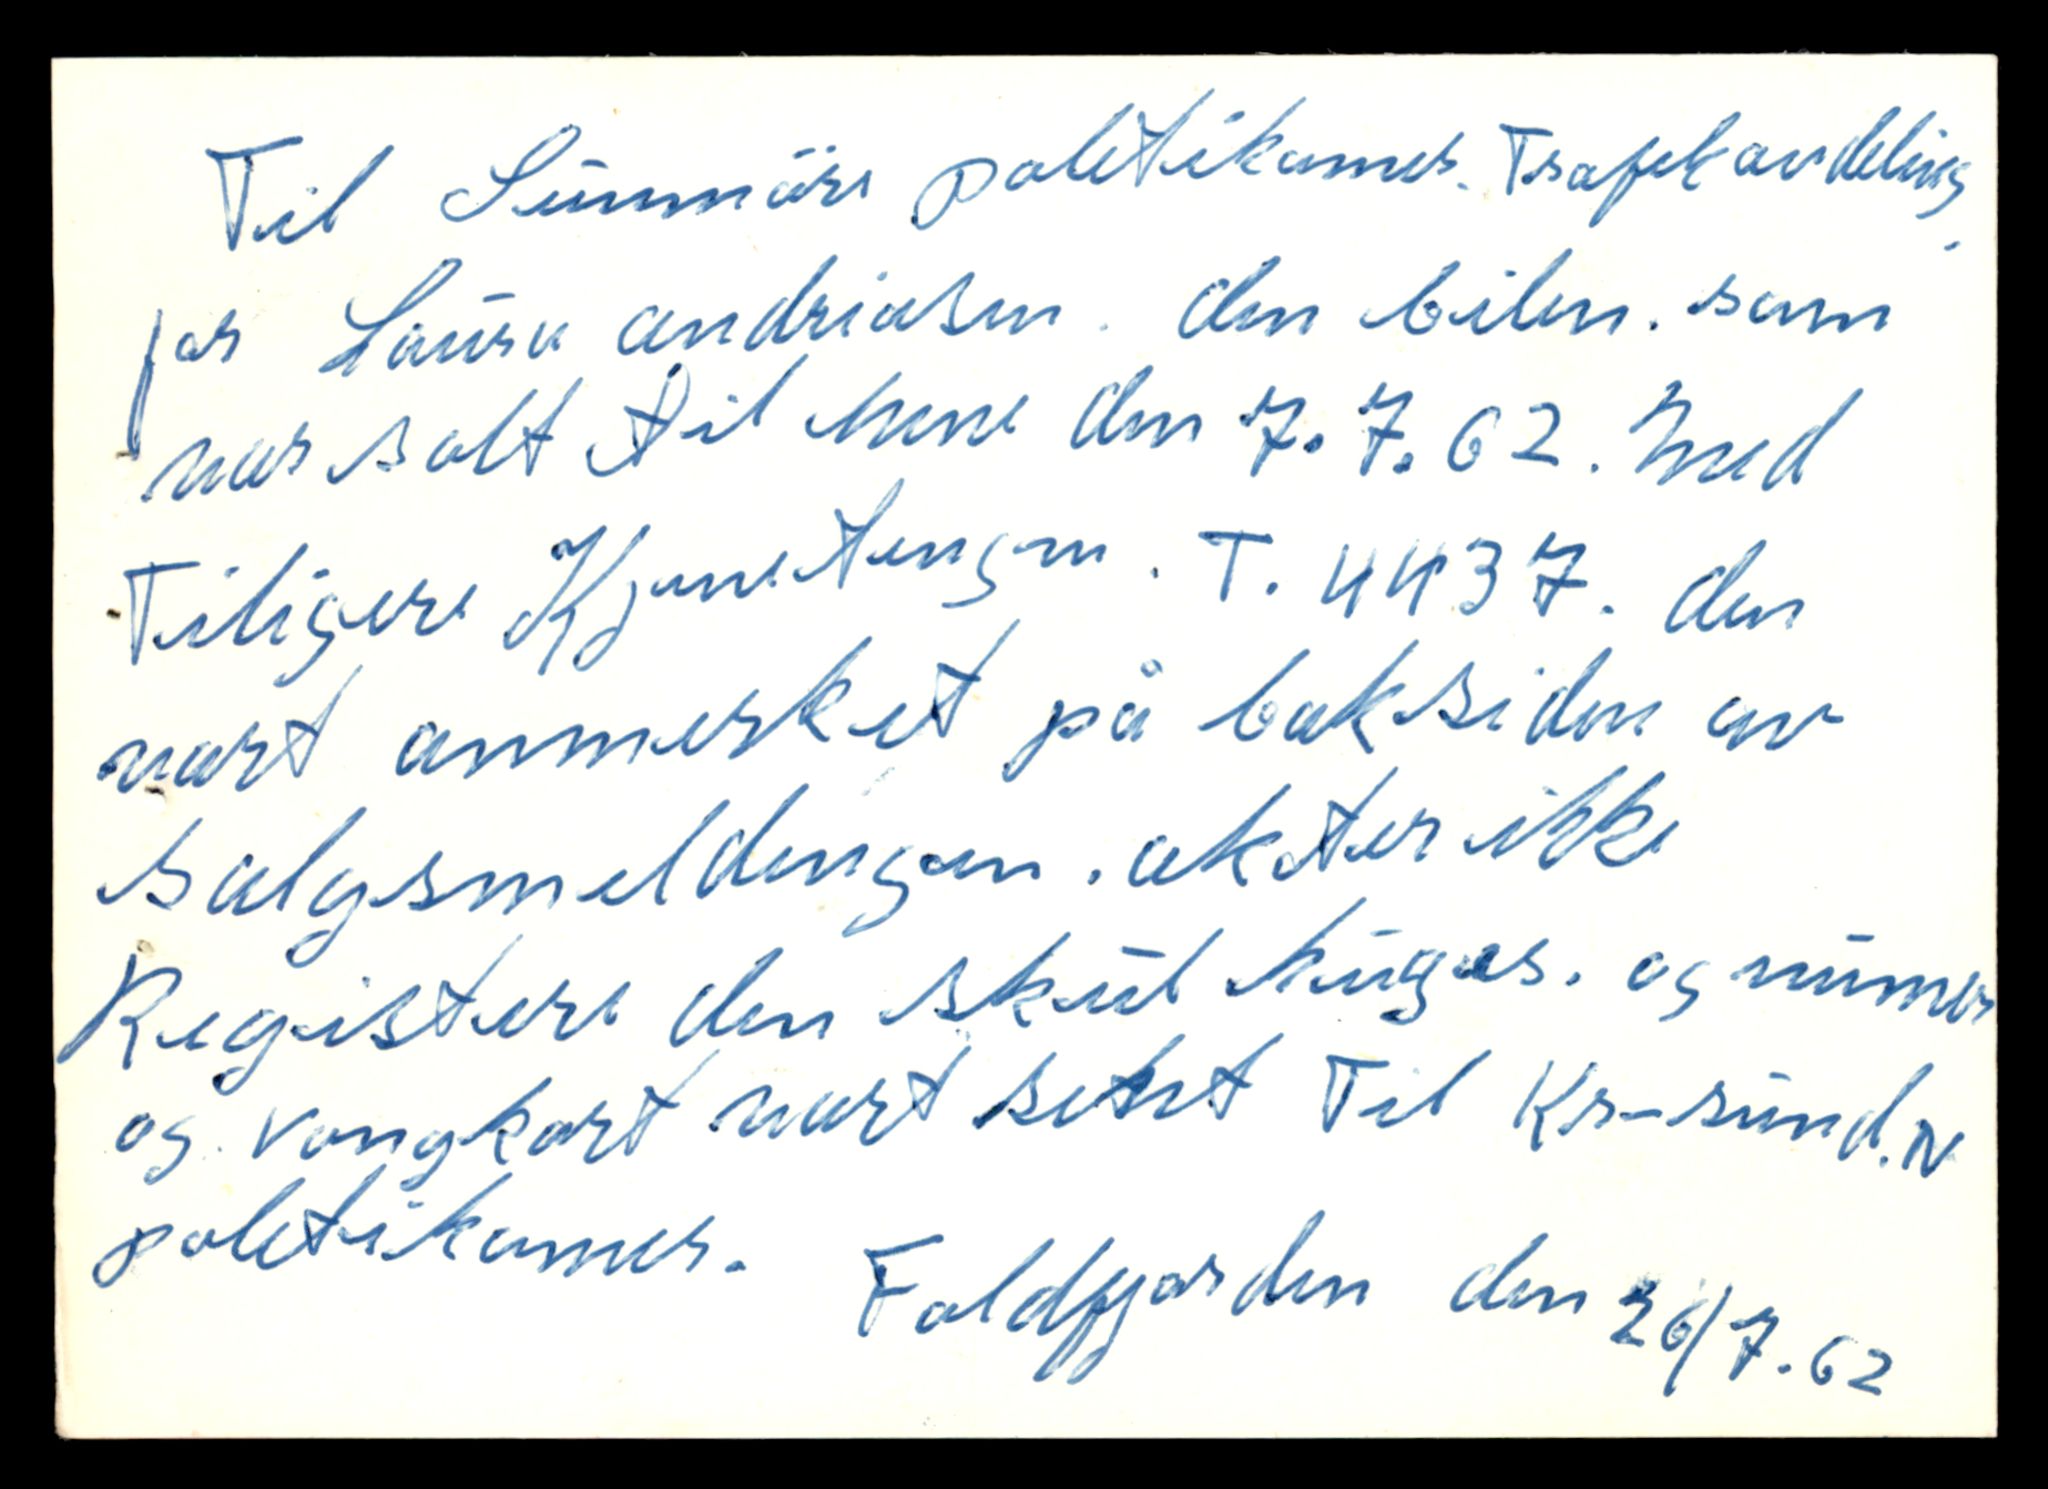 Til Sunnmöre poletikamer. Trafekavdeling.
for Laura andriasen. den bilen. som
var solt til hene den 7.7.62. med
Tiligere Kjenetengn. T. 4437. den
vart anmerket på baksiden av
salgsmeldengen. akter ikke
Registere den skul hugas. og numer
og vongkort vart sent Til Kr-sund.N
poletikamer.
Foldfjorden den 26/7.62